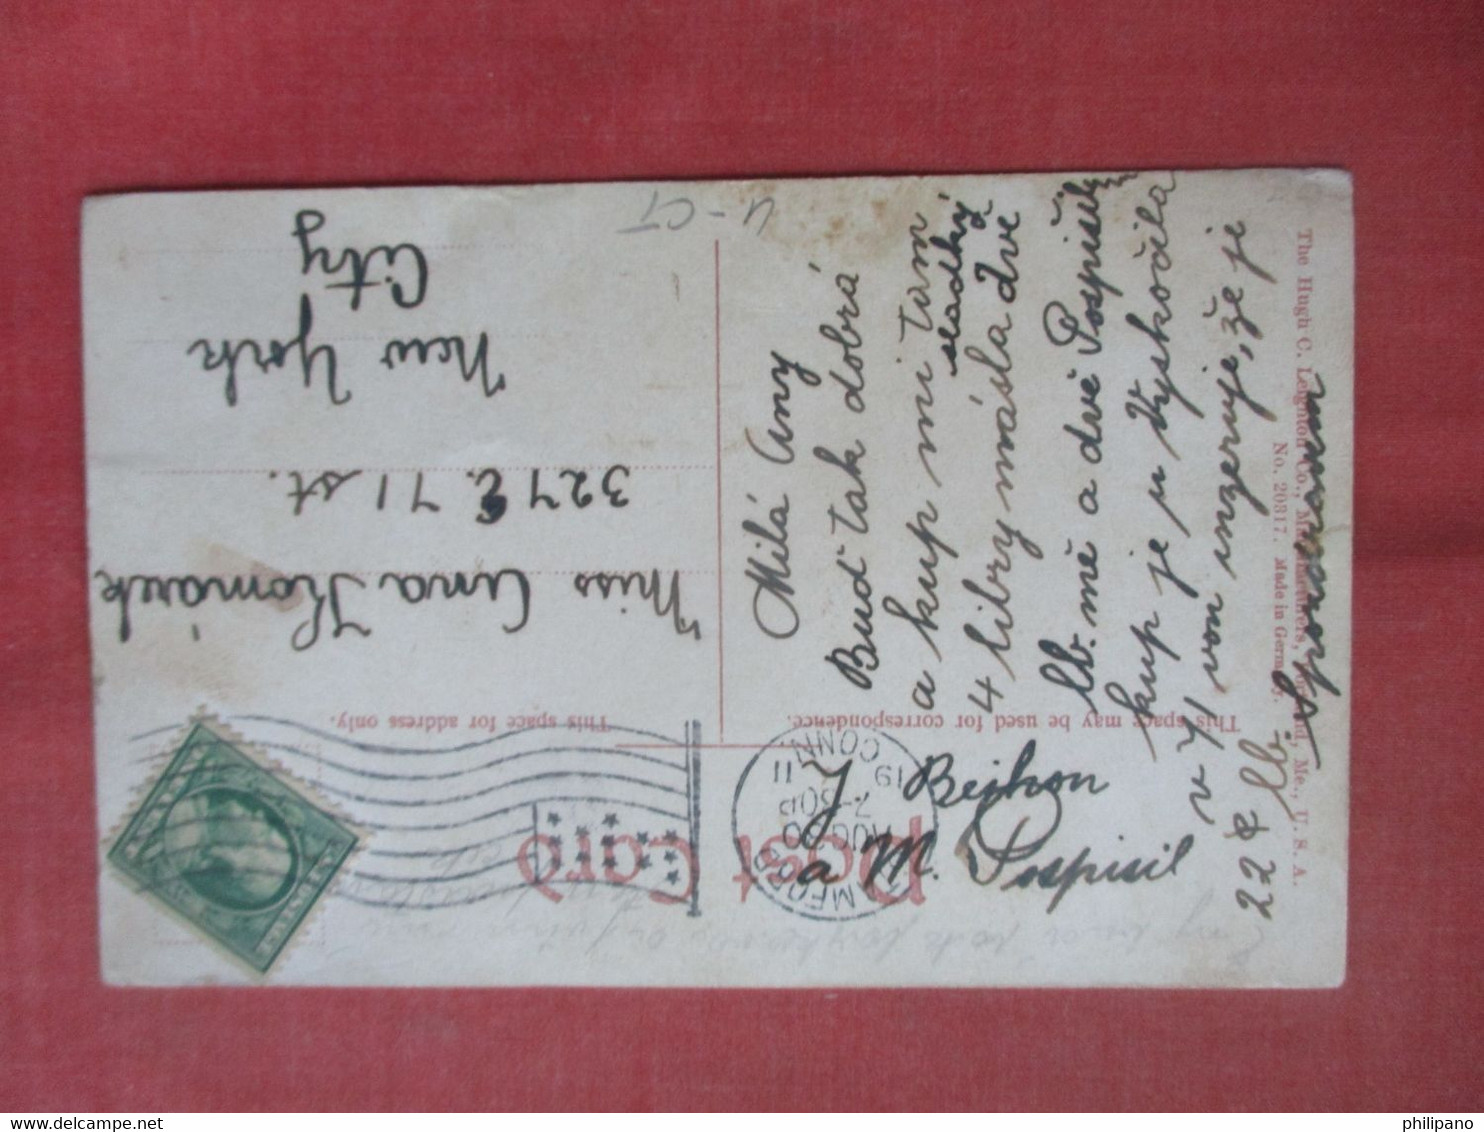 Post Card
This space may be used for correspondence.
This space for address only.
STAMFORD
AUG 20
2-30P
19 11
CONN.
Milá Any
Buď tak dobrá
a kup mi tam
sladký
4 libry másla a dvě
lb. mě a dvě Pospišil
kup je u Vyskočila
v 71 von inzeruje, že je
22¢ lb.
J Bejkon
a M. Pospisil
Miss Anna Komárek
327 E. 71 st.
New York
City
U-CT
The Hugh C. Leighton Co., Manufacturers, Portland, Me., U. S. A.
No. 20317. Made in Germany.
philipano